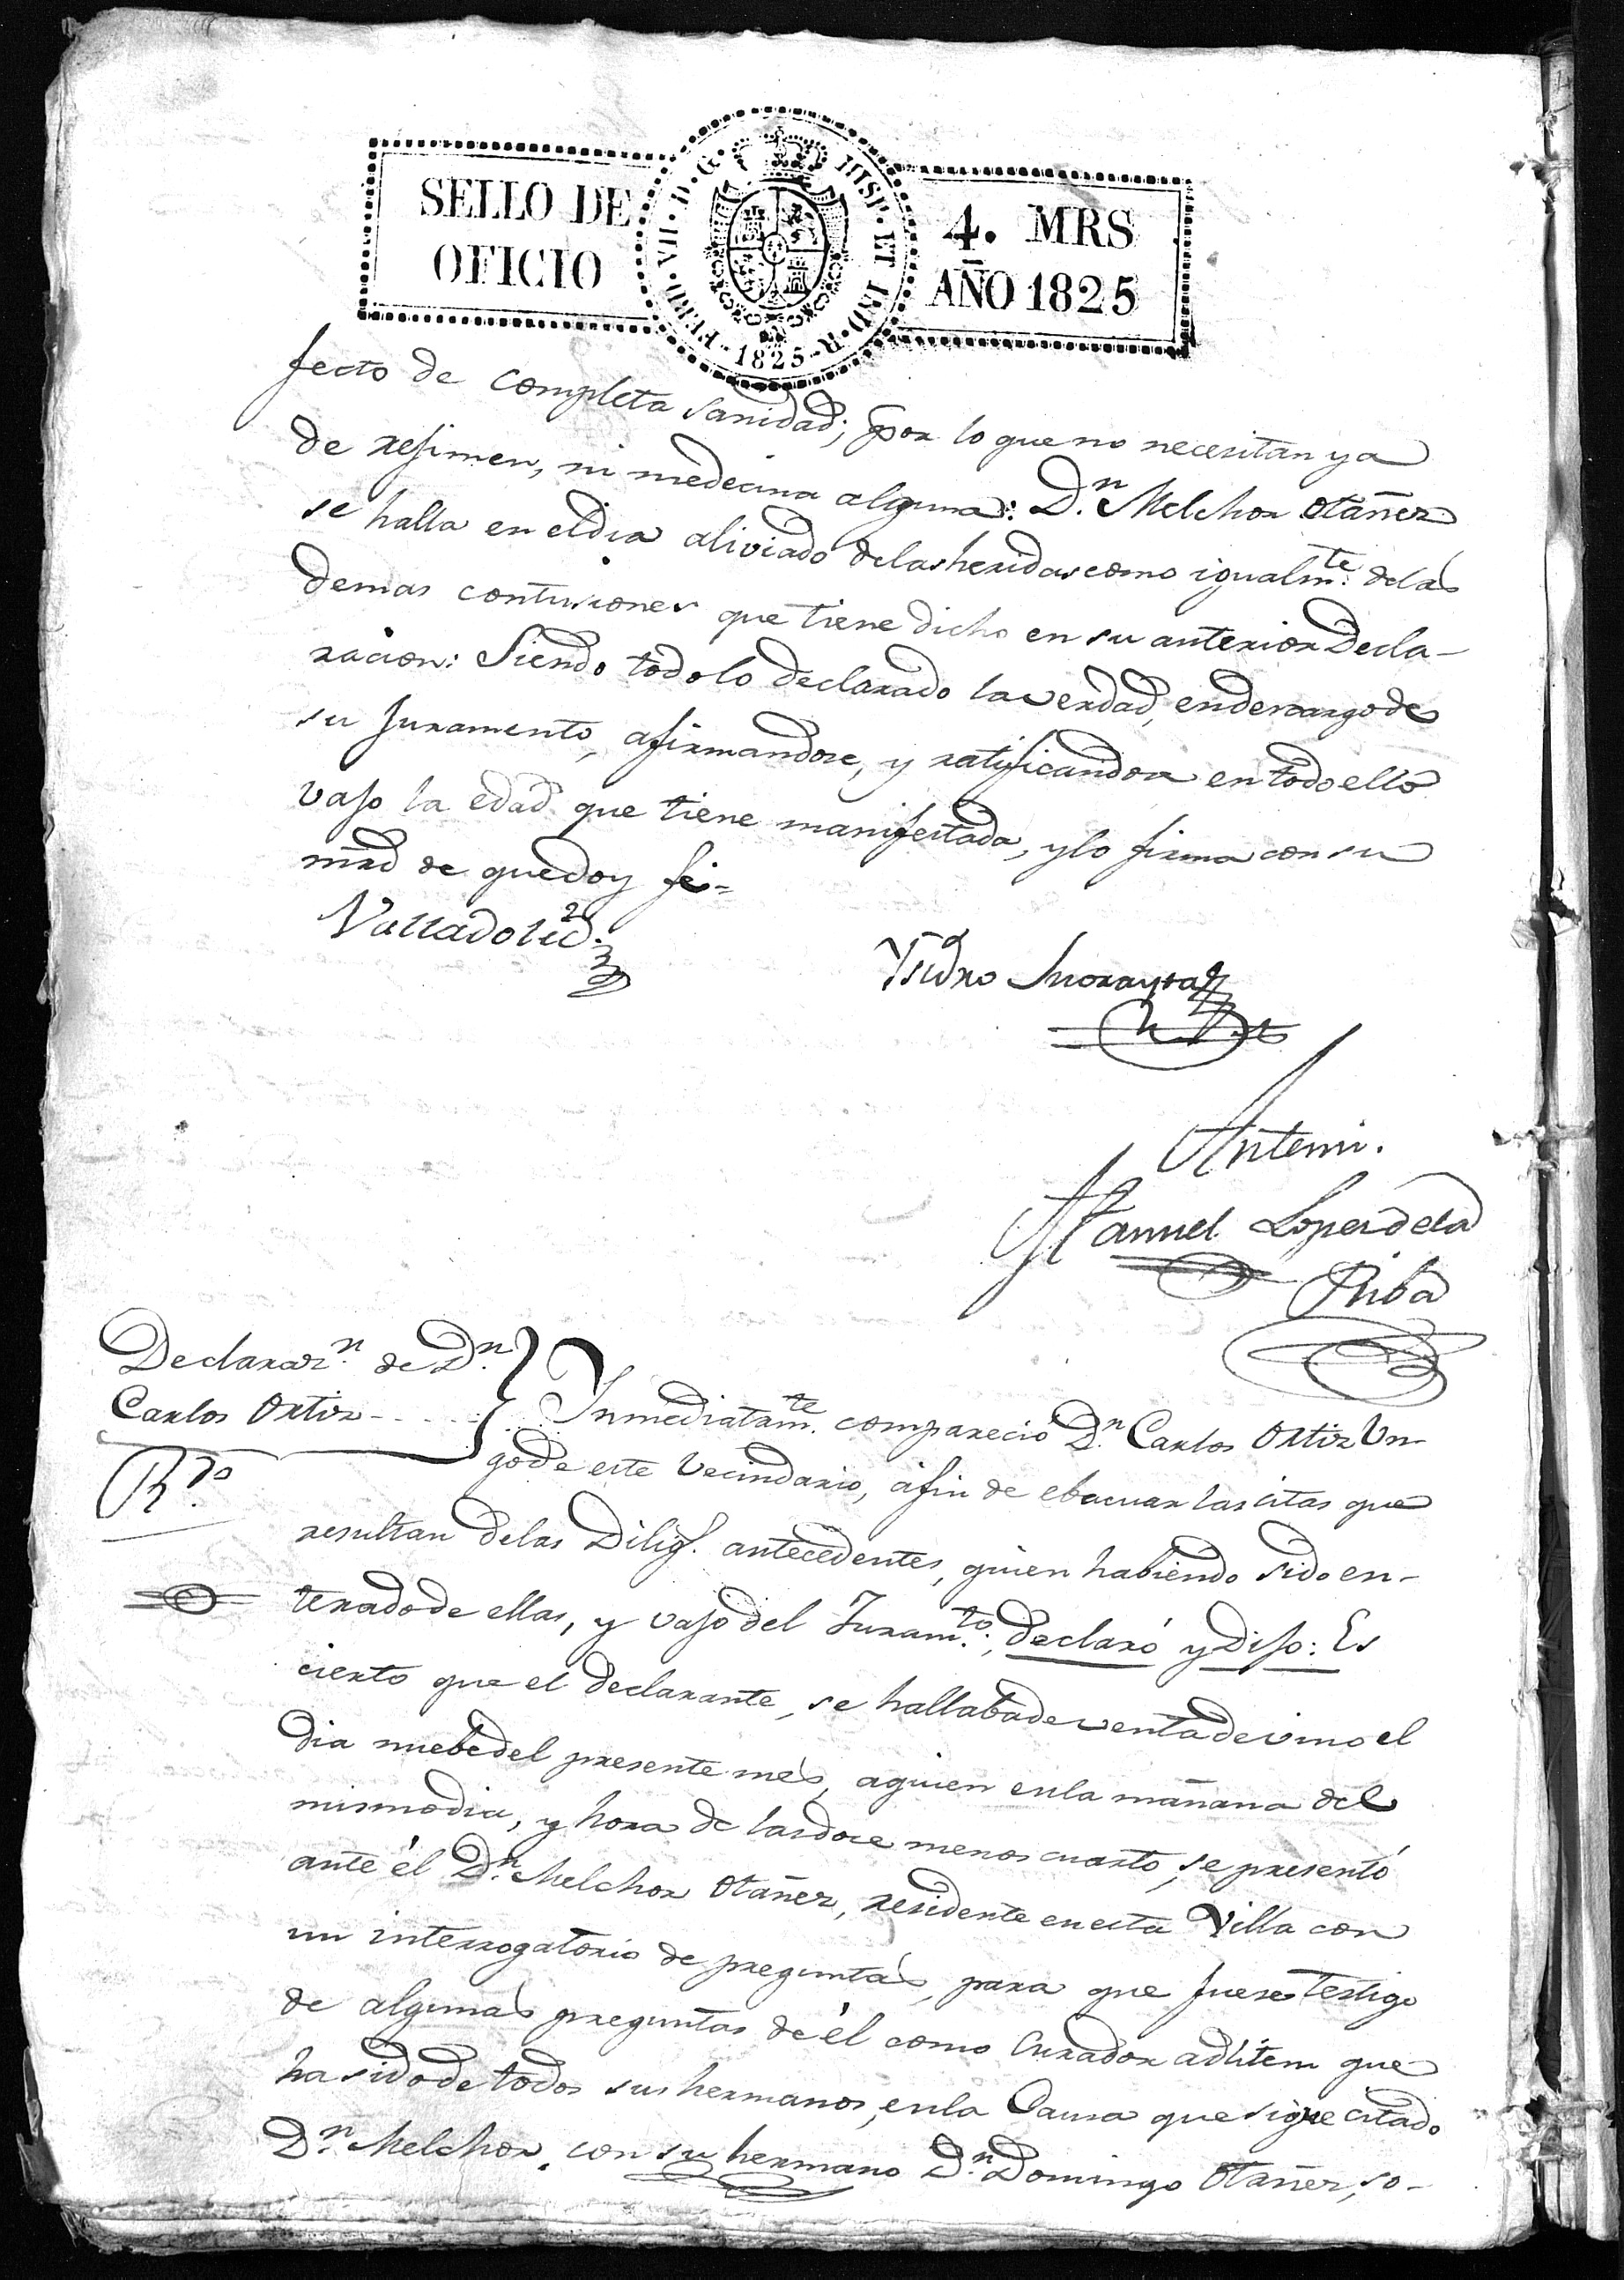 SELLO DE
OFICIO
FERD · VII · D · G · HISP · ET IND · R · 1825
4. MRS
AÑO 1825
fecto de completa sanidad; por lo que no necesitan ya
de rejimen, ni medecina alguna: Dn. Melchor Otañez
se halla en el dia aliviado delas heridas como igualmte. delas
demas contusiones que tiene dicho en su anterior Decla-
racion: Siendo todo lo declarado la verdad, en descargo de
su Juramento, afirmandose, y ratificandose en todo ello
vajo la edad que tiene manifestada, y lo firma con su
mrd de que doy fé=
Valladolid
Ysidro Morayta
Antemi.
Manuel Lopez dela
Riba
Declarazn. de Dn.
Carlos Ortiz
Rdo
Inmediatamte. comparecio Dn. Carlos Ortiz Un-
go de este Vecindario, áfin de ebacuar las citas que
resultan delas Dilig.s antecedentes, quien habiendo sido en-
terado de ellas, y vajo del Juramto., declaró y Dijo: Es
cierto que el declarante, se hallaba de venta de vino el
dia nuebe del presente més, a quien en la mañana del
mismo dia, y hora de las doce menos cuarto, se presentó
ante él Dn. Melchor Otañez, residente en esta Villa con
un interrogatorio de preguntas, para que fuese testigo
de algunas preguntas de él como Curador adlitem que
ha sido de todos sus hermanos, en la Causa que sigue citado
Dn. Melchor, con su hermano Dn. Domingo Otañez, so-